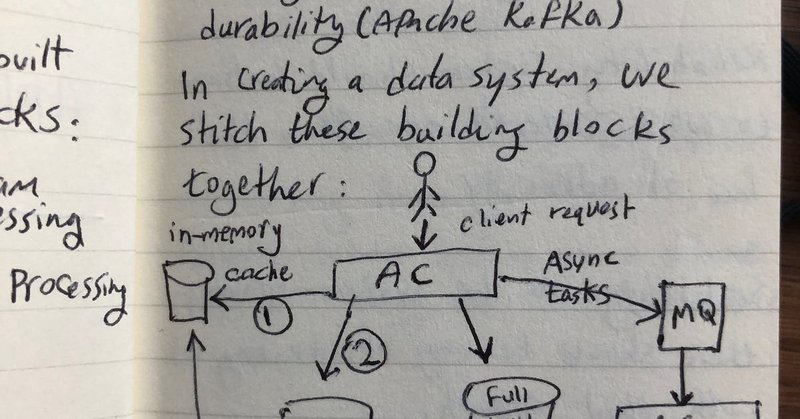 built
cks:
am
essing
Processing
durability (Apache Kafka)
In creating a data system, we
stitch these building blocks
together:
client request
in-memory
cache
AC
Async
tasks
MQ
1
2
Full